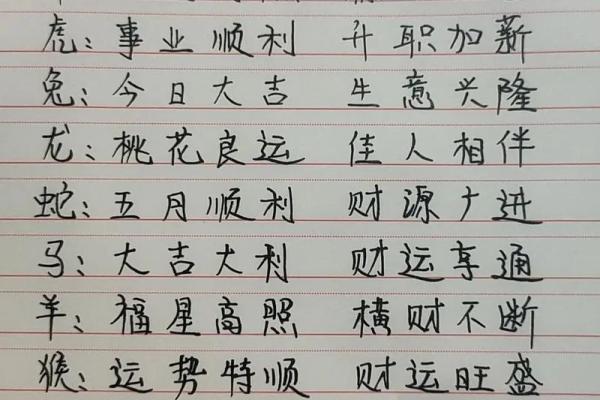 虎：事业顺利 升职加薪
兔：今日大吉 生意兴隆
龙：桃花良运 佳人相伴
蛇：五月顺利 财源广进
马：大吉大利 财运享通
羊：福星高照 横财不断
猴：运势特顺 财运旺盛